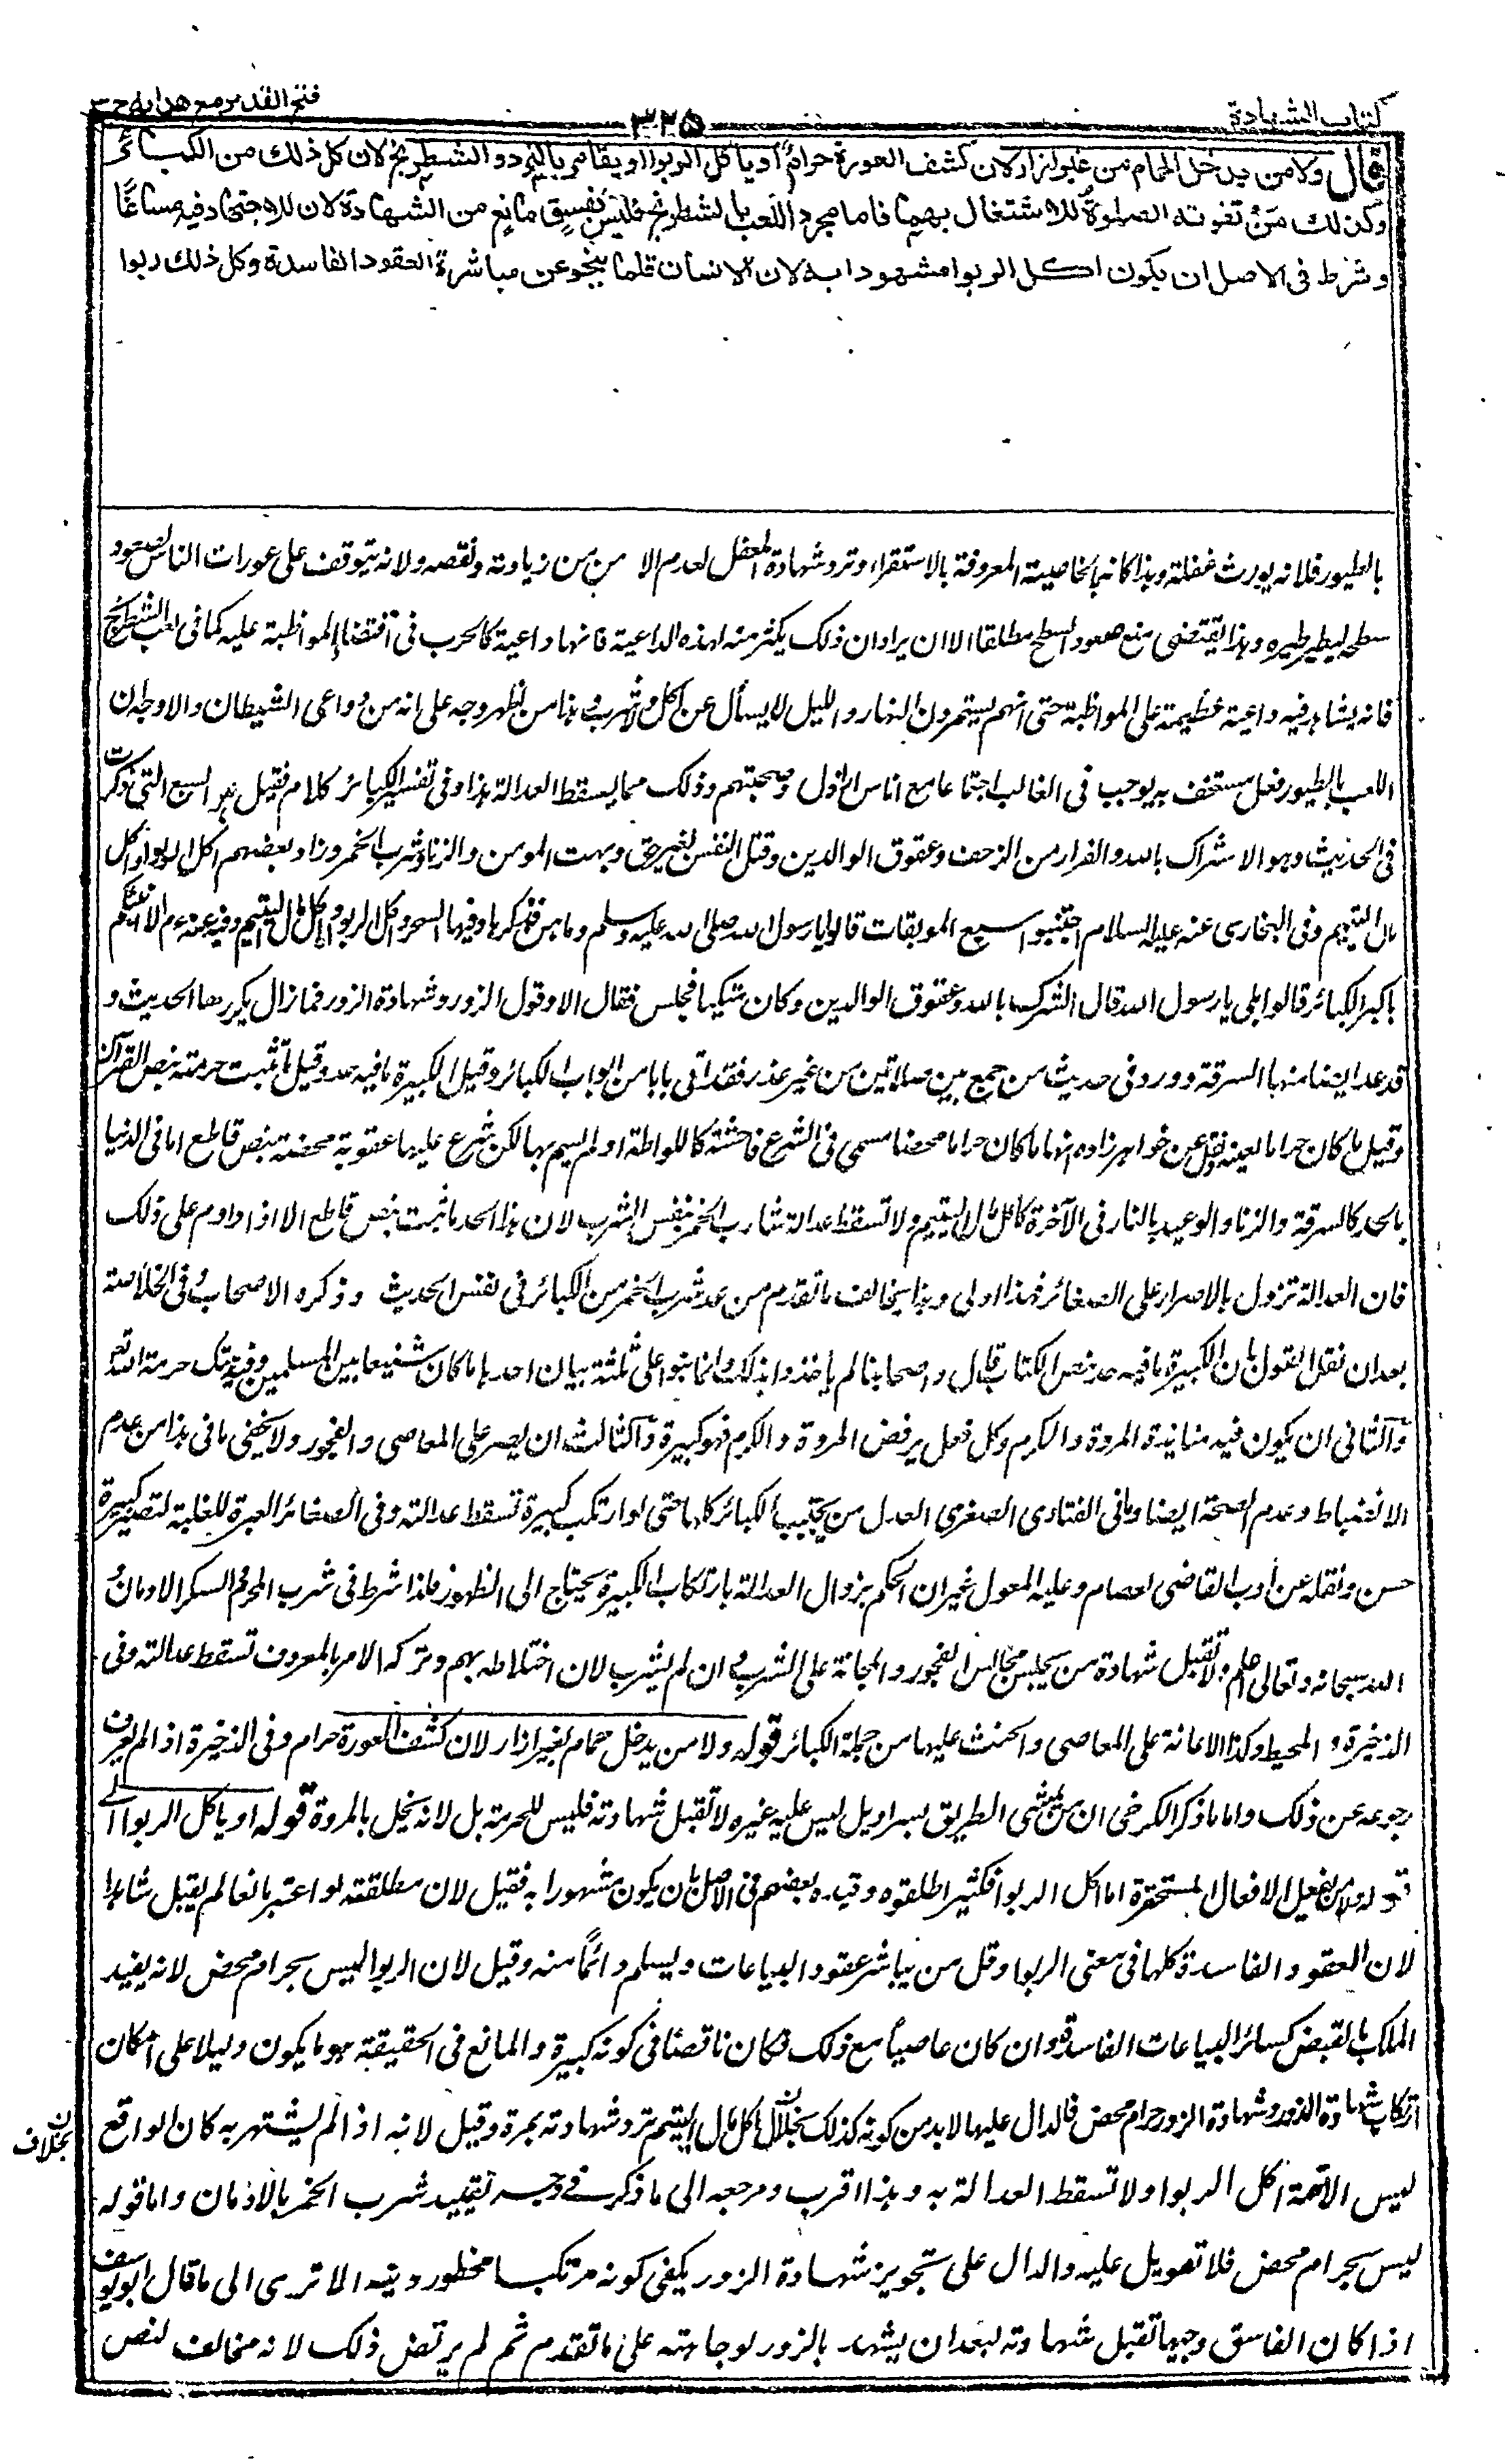 كتاب الشهادة
٣٢٥
فتح القدير مع هدايه ج ٣
قال ولا من يدخل الحمام من غير ازار لان كشف العورة حرام او ياكل الربوا او يقامر بالنرد و الشطرنج لان كل ذلك من الكبائر
وكذلك من تفوته الصلوة للاشتغال بهما فاما مجرد اللعب بالشطرنج فليس بفسق مانع من الشهادة لان للاجتهاد فيه مساغا
و شرط فى الاصل ان يكون اكل الربوا مشهودا به لان الانسان قلما ينجو عن مباشرة العقود الفاسدة وكل ذلك ربوا
بالطيور فلانه يورث غفلة وهذا كانه بالخاصية المعروفة بالاستقراء وترد شهادة المغفل لعدم الامن من زيادته ونقصه ولانه يتوقف على عورات الناس لصعود
سطحه ليطير طيره وهذا يقتضى منع صعود السطح مطلقا الا ان يراد ان ذلك يكثر منه لهذه الداعية فانها داعية كالحرب فى اقتضاء المواظبة عليه كما فى لعب الشطرنج
فانه يشاهد فيه داعية عظيمة على المواظبة حتى انهم يستمرون النهار والليل لا يسأل عن اكل ولا شرب وهذا من اظهر وجه على انه من دواعى الشيطان والاوجه ان
اللعب بالطيور فعل مستخف به يوجب فى الغالب اجتماعا مع اناس اراذل وصحبتهم وذلك مما يسقط العدالة هذا وفى تفسير الكبائر كلام فقيل هى السبع التى ذكرت
فى الحديث وهو الاشراك بالله والفرار من الزحف وعقوق الوالدين وقتل النفس بغير حق وبهت المومن والزنا وشرب الخمر وزاد بعضهم اكل الربوا و اكل
مال اليتيم وفى البخارى عنه عليه السلام اجتنبوا السبع الموبقات قالوا يا رسول الله صلى الله عليه وسلم وما هن فذكرها وفيها السحر واكل الربوا واكل مال اليتيم وفيه عنه عم الا انبئكم
باكبر الكبائر قالوا بلى يا رسول الله قال الشرك بالله وعقوق الوالدين وكان متكيها فجلس فقال الا وقول الزور وشهادة الزور فما زال يكررها الحديث و
قد عد ايضا منها السرقة وورد فى حديث من جمع بين صلاتين من غير عذر فقد اتى بابا من ابواب الكبائر وقيل الكبيرة ما فيه حد وقيل ما ثبت حرمته بنص القرآن
وقيل ما كان حراما لعينه ونقل عن خواهر زاده انها ما كان حراما محضا مسمى فى الشرع فاحشة كاللواطة او لم يسم بها لكن شرع عليها عقوبة محضة بنص قاطع اما فى الدنيا
بالحد كالسرقة والزنا والوعيد بالنار فى الآخرة كاكل مال اليتيم ولا تسقط عدالة شارب الخمر بنفس الشرب لان هذا الحد ما ثبت بنص قاطع الا اذا داوم على ذلك
فان العدالة تزول بالاصرار على الصغائر فهذا اولى وهذا يخالف ما تقدم من عد شرب الخمر من الكبائر فى نفس الحديث وذكره الاصحاب وفى الخلاصة
بعد ان نقل القول بان الكبيرة ما فيه حد بنص الكتاب قال واصحابنا لم ياخذوا بذلك وانما بنوا على ثلثة بيان احدها ما كان شنيعا بين المسلمين وفيه هتك حرمة الله تع
والثانى ان يكون فيه منابذة المروة والكرم وكل فعل يرفض المروة والكرم فهو كبيرة والثالث ان يصر على المعاصى والفجور ولا يخفى ما فى هذا من عدم
الانضباط وعدم الصحة ايضا وما فى الفتاوى الصغرى العدل من يجتنب الكبائر كلها حتى لو ارتكب كبيرة تسقط عدالته وفى الصغائر العبرة للغلبة لتصير كبيرة
حسن ونقله عن ادب القاضى لعصام وعليه المعول غير ان الحكم بزوال العدالة بارتكاب الكبيرة يحتاج الى الظهور فلذا شرط فى شرب المحرم والسكر الادمان و
الله سبحانه وتعالى اعلم ولا تقبل شهادة من يجلس مجالس الفجور والمجانة على الشرب وان لم يشرب لان اختلاطه بهم وتركه الامر بالمعروف تسقط عدالته وفى
الذخيرة والمحيط وكذا الاعانة على المعاصى والحث عليها من جملة الكبائر قوله ولا من يدخل حمام بغير ازار لان كشف العورة حرام وفى الذخيرة اذا لم يعرف
رجوعه عن ذلك واما ما ذكر الكرخى ان من يمشى الطريق بسراويل ليس عليه غيره لا تقبل شهادته فليس للحرمة بل لانه يخل بالمروة قوله او ياكل الربوا الى
قوله ولا من يفعل الافعال المستحقرة اما اكل الربوا فكثير اطلقوه وقيده بعضهم فى الاصل بان يكون مشهورا به فقيل لان مطلقه لو اعتبر مانعا لم يقبل شاهد
لان العقود الفاسدة كلها فى معنى الربوا وقل من يباشر عقود البياعات ويسلم دائما منه وقيل لان الربوا ليس بحرام محض لانه يفيد
الملك بالقبض كسائر البياعات الفاسدة وان كان عاصيا مع ذلك فكان ناقصا فى كونه كبيرة والمانع فى الحقيقة هو ما يكون دليلا على امكان
ارتكاب شهادة الزور وشهادة الزور حرام محض فالدال عليها لابد من كونه كذلك بخلاف اكل مال اليتيم ترد شهادته بمرة وقيل لانه اذا لم يشتهر به كان الواقع
بخلاف
ليس الا تهمة اكل الربوا ولا تسقط العدالة به وهذا اقرب ومرجعه الى ما ذكر فى وجه تقييد شرب الخمر بالادمان واما قوله
ليس بحرام محض فلا تعويل عليه والدال على تجويز شهادة الزور يكفى كونه مرتكبا محظور دينه الا ترى الى ما قال ابو يوسف
اذا كان الفاسق وجيها تقبل شهادته لبعد ان يشهد بالزور لوجاهته على ما تقدم ثم لم يرتض ذلك لانه مخالف لنص